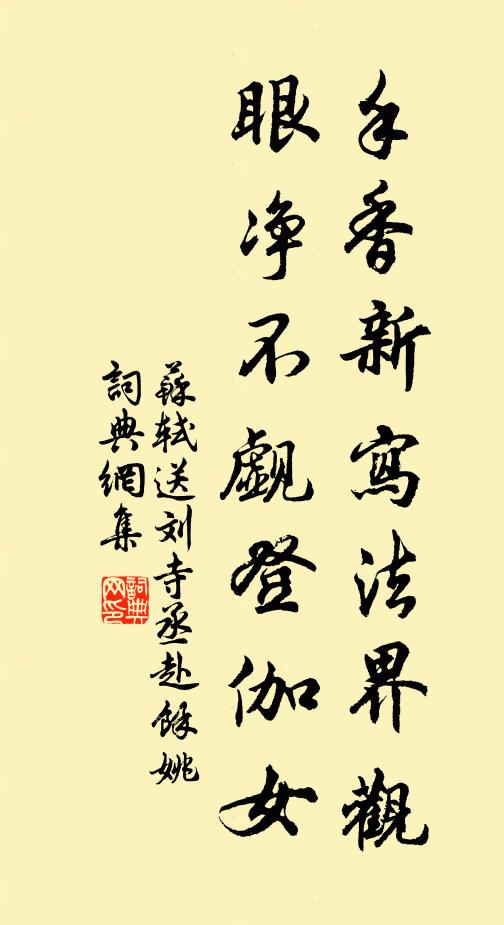 手香新寫法界觀
眼净不觑登伽女
蘇軾送刘寺丞赴餘姚
詞典網集
詞典
网印